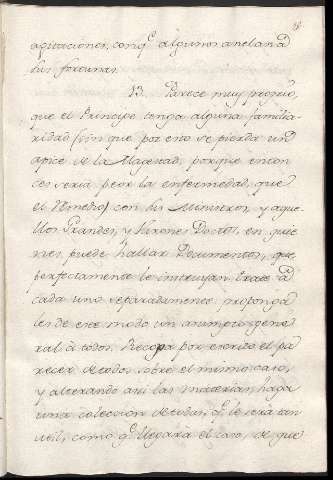 agitaciones, conq.e algunos anelan á
sus fortunas.
13. Parece muy proprio,
que el Principe tenga alguna familia-
ridad (sin que por esto se pierda un
apice de la Magestad, porque enton
ces seria peor la enfermedad, que
el remedio) con sus Ministros, y aque
llos Grandes, y Varones Doctos, en quie
nes puede hallar Documentos, que
perfectamente le instruyan: trate á
cada uno separadamente: proponga
les de este modo un asumpto gene
ral á todos: Recopa por escrito el pa
recer de todos sobre el mismo caso,
y alterando asi las materias, haga
una coleccion de todas, q.e le será tan
util, como q.e llegará el caso, de que